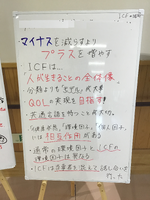 ICFの説明
マイナスを減らすより
プラスを増やす
ICFは…
"人が生きることの全体像"
分類よりも"モデル"が大事
QOLの実現を目指す
共通言語を持つことが大切。
"健康状態"、"環境因子"、"個人因子"
には相互作用がある
・通常の環境因子と、ICFの
環境因子は異なる。
・ICFは当事者を